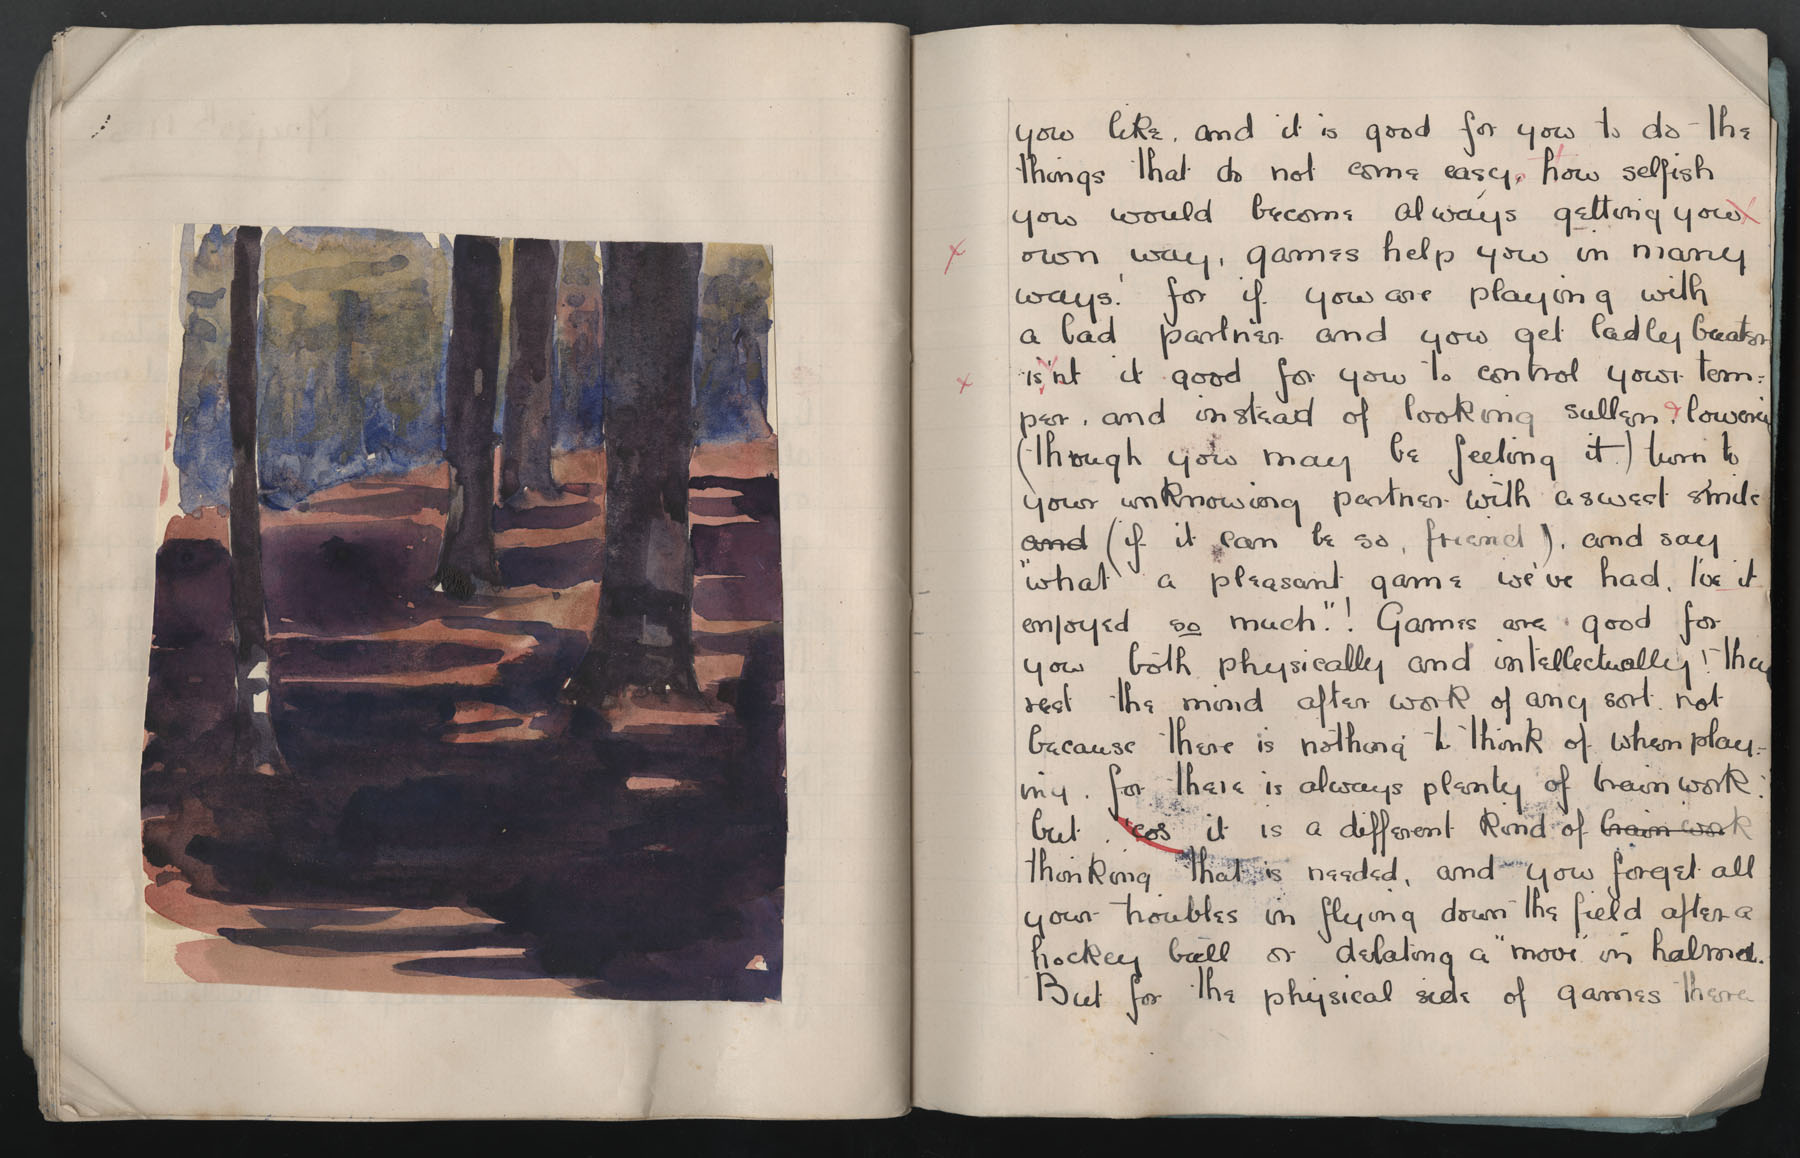 you like, and it is good for you to do the
things that do not come easy, how selfish
you would become always getting you
own way, games help you in many
ways! for if you are playing with
a bad partner and you get badly beaten
is'nt it good for you to control your tem=
per, and instead of looking sullen & lowering
(though you may be feeling it) turn to
your unknowing partner with a sweet smile
and (if it can be so, friend), and say
"what a pleasant game we've had, I've it
enjoyed so much."! Games are good for
you both physically and intellectually! they
rest the mind after work of any sort. not
because there is nothing to think of when play=
ing. for there is always plenty of brain work:
but 'cos it is a different kind of brain work
thinking that is needed, and you forget all
your troubles in flying down the field after a
hockey ball or debating a "move" in halma.
But for the physical side of games there